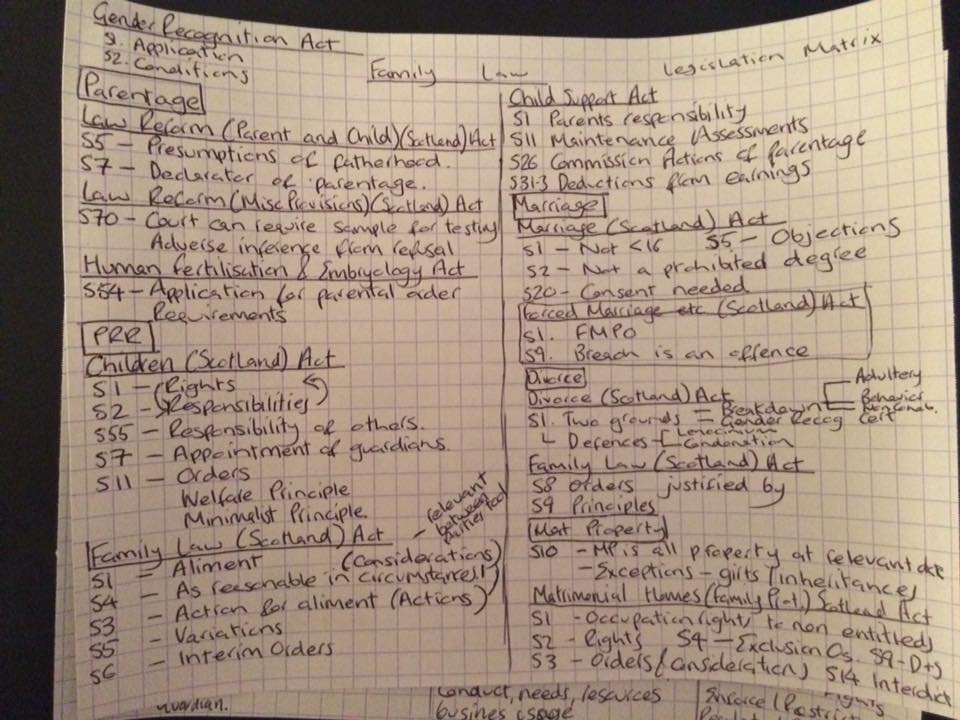 Gender Recognition Act
S1. Application
S2. Conditions
Family Law
Legislation Matrix
Parentage
Law Reform (Parent and Child) (Scotland) Act
S5 - Presumptions of fatherhood.
S7 - Declarator of parentage.
Law Reform (Misc Provisions) (Scotland) Act
S70 - Court can require sample for testing
Adverse inference from refusal
Human Fertilisation & Embryology Act
S54 - Application for parental order
Requirements
PRR
Children (Scotland) Act
S1 - Rights
S2 - Responsibilities
S55 - Responsibility of others.
S7 - Appointment of guardians.
S11 - Orders
Welfare Principle
Minimalist Principle
Family Law (Scotland) Act
- relevant
between
parties too
S1 - Aliment (Considerations)
S4 - As reasonable in circumstances
S3 - Action for aliment (Actions)
S5 - Variations
S6 - Interim Orders
Child Support Act
S1 Parents responsibility
S11 Maintenance Assessments
S26 Commission Actions of parentage
S31-3 Deductions from earnings
Marriage
Marriage (Scotland) Act
S1 - Not <16 S5 - Objections
S2 - Not a prohibited degree
S20 - Consent needed
Forced Marriage etc (Scotland) Act
S1. FMPO
S9. Breach is an offence
Divorce
Divorce (Scotland) Act
S1. Two grounds - Breakdown - Adultery
Behavior
Non Cohab.
- Gender Recog Cert
Defences - Lenocinium
- Condonation
Family Law (Scotland) Act
S8 Orders justified by
S9 Principles
Mat Property
S10 - MP is all property at relevant date
- Exceptions - gifts / inheritances
Matrimonial Homes (Family Prot.) Scotland Act
S1 - Occupation rights to non entitled
S2 - Rights S4 - Exclusion Os. S9 - D+S
S3 - Orders (consideration) S14 Interdict
guardian.
Conduct, needs, resources
business usage
Rights
Enforce / Restrict